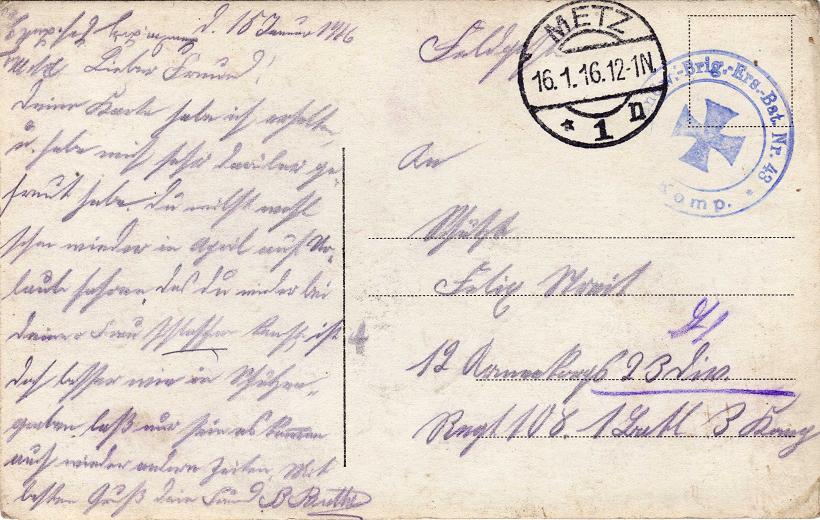 d. 15 Januar 1916
Metz Lieber Freund!
Deine Karte habe ich erhalten,
u. habe mich sehr darüber ge-
freut habe, du willst wohl
schon wieder in April auf Ur-
laub fahren, das du wieder bei
deiner Frau schlafen kanst, ist
doch besser wie in Schützen-
graben, laß nur sein es kommen
auch wieder andere Zeiten, Mit
besten Gruß dein Freund
Feldpost
METZ
16.1.16.12-1N.
* 1 n
Brig.-Ers.-Bat. Nr. 43
Komp. *
An
Schütze
Felix
12 Armeekorps 23 Div.
Regt 108, 1 Batl 3 Komp